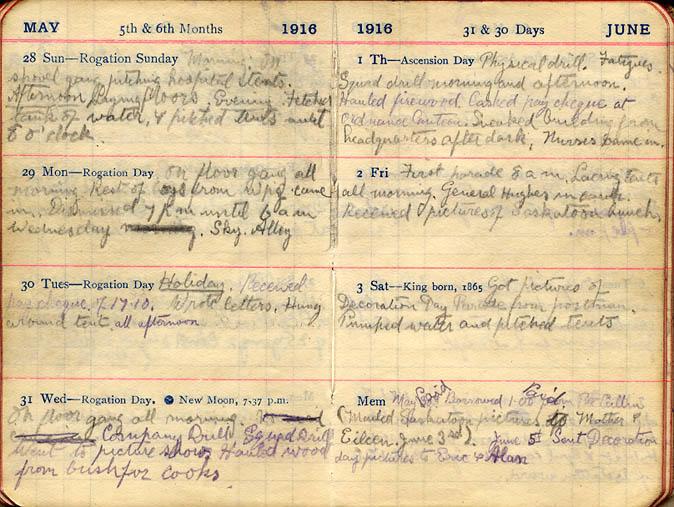 MAY 5th & 6th Months 1916
28 Sun—Rogation Sunday Morning. On
shovel gang, pitching hospital tents.
Afternoon Laying floors Evening Fetched
tank of water, & pitched tents until
8 o'clock.
29 Mon—Rogation Day On floor gang all
morning Rest of boys from Wpg. came
in. Dismissed 7 p.m until 6 a m
Wednesday Sky. Alley
30 Tues—Rogation Day Holiday. Received
pay cheque of 17.10. Wrote letters. Hung
around tent all afternoon
31 Wed—Rogation Day. New Moon, 7.37 p.m.
On floor gang all morning.
Company Drill, Squad Drill
Went to picture show Hauled wood
from bush for cooks
1916 31 & 30 Days JUNE
1 Th—Ascension Day Physical drill. Fatigues.
Squad drill morning and afternoon.
Hauled firewood. Cashed pay cheque at
Ordnance Canteen. Sneaked bunting from
headquarters after dark. Nurses came in.
2 Fri First parade 6 a m. Lacing tents
all morning. General Hughes in camp.
Received 9 pictures of Saskatoon bunch.
3 Sat—King born, 1865 Got pictures of
Decoration Day Parade from postman.
Pumped water and pitched tents
Mem May Borrowed 1.00 from Pte
(Mailed Saskatoon pictures to Mother &
Eileen, June 3rd). June 5th Sent Decoration
day pictures to Eric & Alan